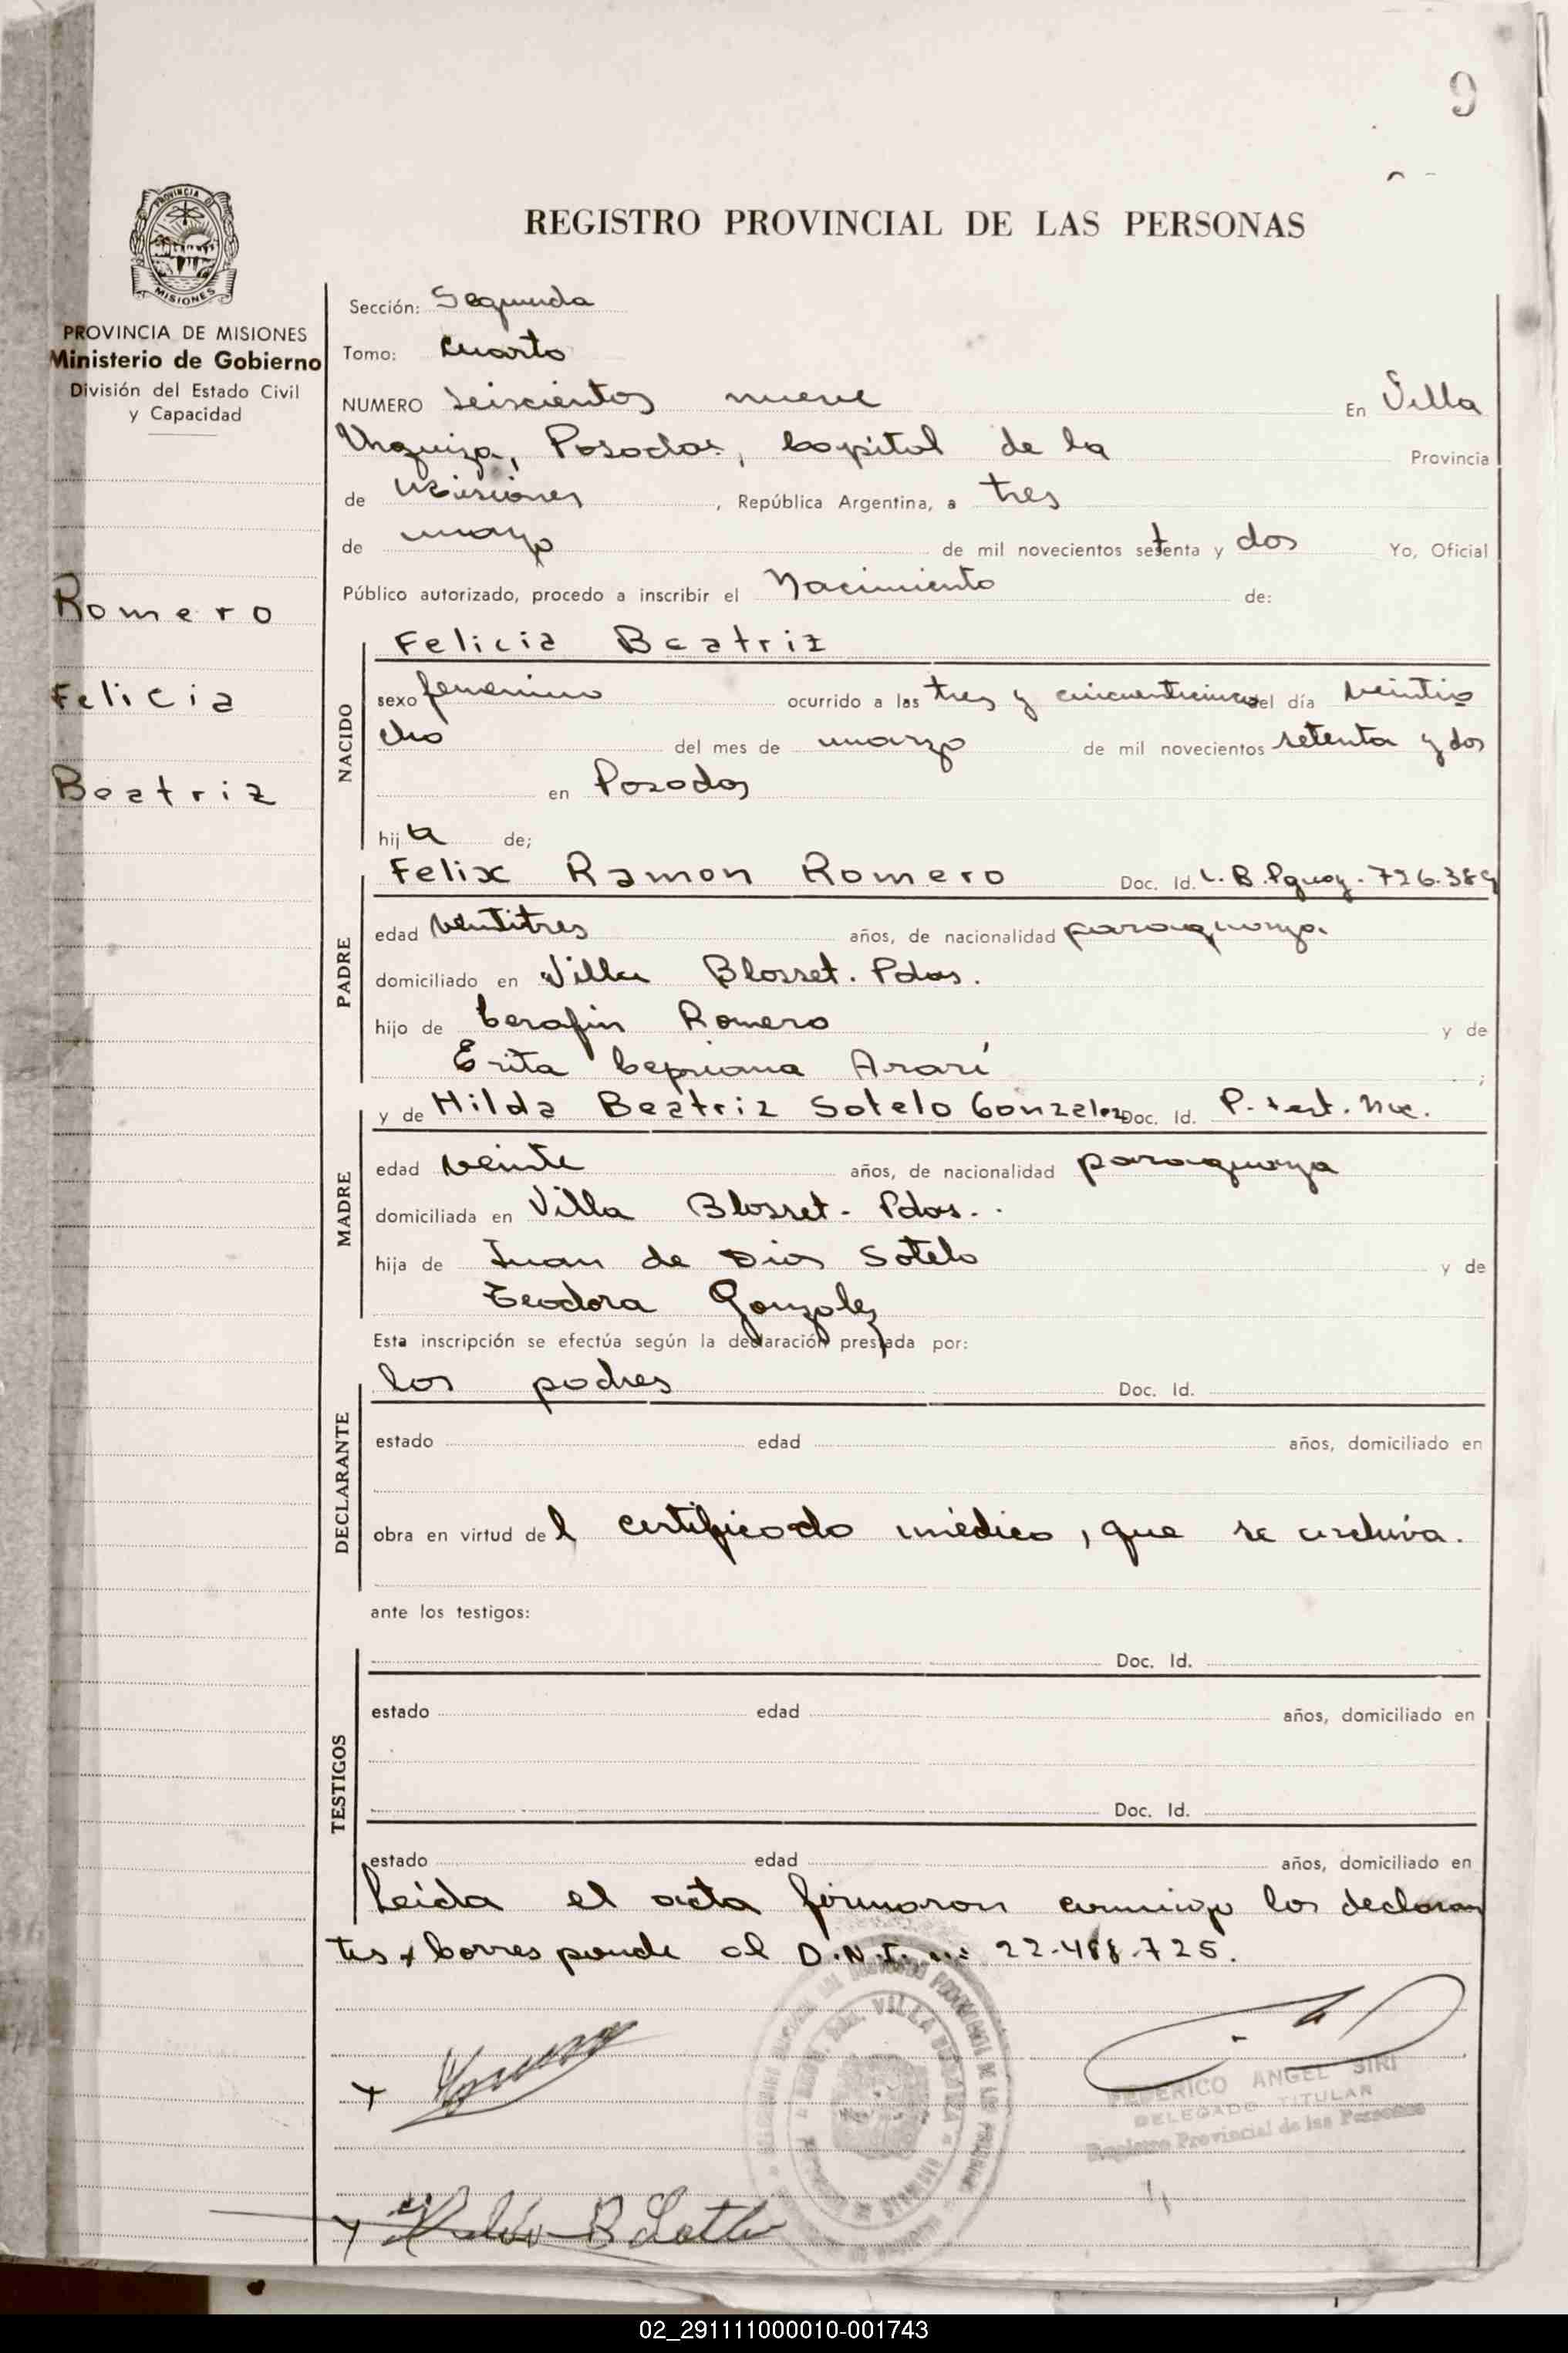 9
PROVINCIA DE
MISIONES
REGISTRO PROVINCIAL DE LAS PERSONAS
PROVINCIA DE MISIONES
Ministerio de Gobierno
División del Estado Civil
y Capacidad
Romero
Felicia
Beatriz
Sección: Segunda
Tomo: Cuarto
NUMERO Seiscientos nueve En Villa
Urquiza, Posadas, Capital de la Provincia
de Misiones, República Argentina, a tres
de mayo de mil novecientos setenta y dos Yo, Oficial
Público autorizado, procedo a inscribir el Nacimiento de:
NACIDO
Felicia Beatriz
sexo femenino ocurrido a las tres y cincuenticinco del día veintio
cho del mes de marzo de mil novecientos setenta y dos
en Posadas
hija de;
PADRE
Felix Ramon Romero Doc. Id. L.B.Pguay. 726.389
edad veintitres años, de nacionalidad paraguaya.
domiciliado en Villa Blosset. Pdas.
hijo de Serafin Romero y de
Cepriana Ararí ;
MADRE
y de Hilda Beatriz Sotelo Gonzalez Doc. Id. P. test. Nac.
edad veinte años, de nacionalidad paraguaya
domiciliada en Villa Blosset- Pdas..
hija de Juan de Dios Sotelo y de
Teodora Gonzalez
Esta inscripción se efectúa según la declaración prestada por:
DECLARANTE
los padres Doc. Id.
estado edad años, domiciliado en
obra en virtud del certificado médico, que se archiva.
ante los testigos:
TESTIGOS
Doc. Id.
estado edad años, domiciliado en
Doc. Id.
estado edad años, domiciliado en
Leída el acta firmaron conmigo los declaran
tes Corresponde al D.N.I. n: 22.488.725.
VILLA URQUIZA
FEDERICO ANGEL SIRI
DELEGADO TITULAR
Registro Provincial de las Personas
02_291111000010-001743